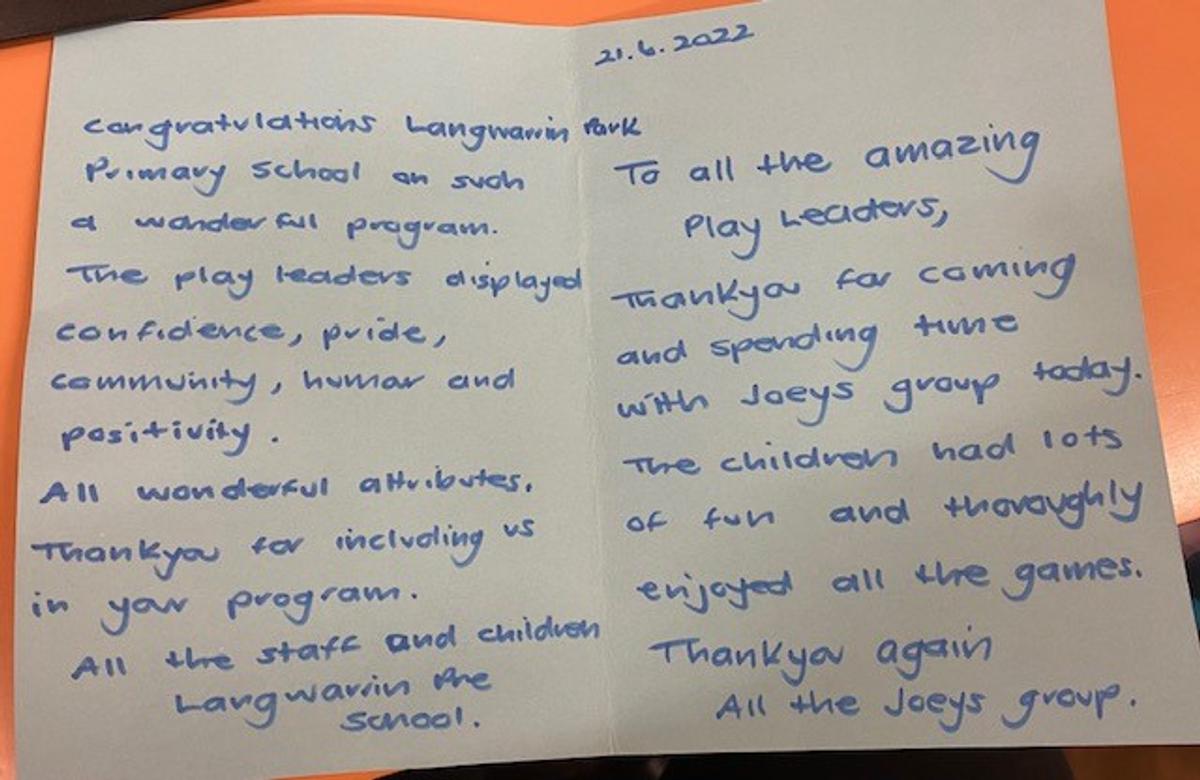 Congratulations Langwarrin Park
Primary School on such
a wonderful program.
The play leaders displayed
confidence, pride,
community, humor and
positivity.
All wonderful attributes.
Thankyou for including us
in your program.
All the staff and children
Langwarrin Pre
School.
21.6.2022
To all the amazing
Play Leaders,
Thankyou for coming
and spending time
with Joeys group today.
The children had lots
of fun and thoroughly
enjoyed all the games.
Thankyou again
All the Joeys group.